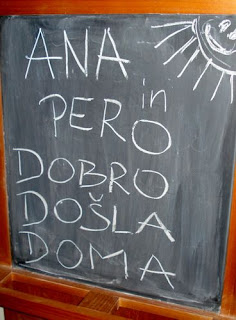 ANA
in
PERO
DOBRO
DOŠLA
DOMA